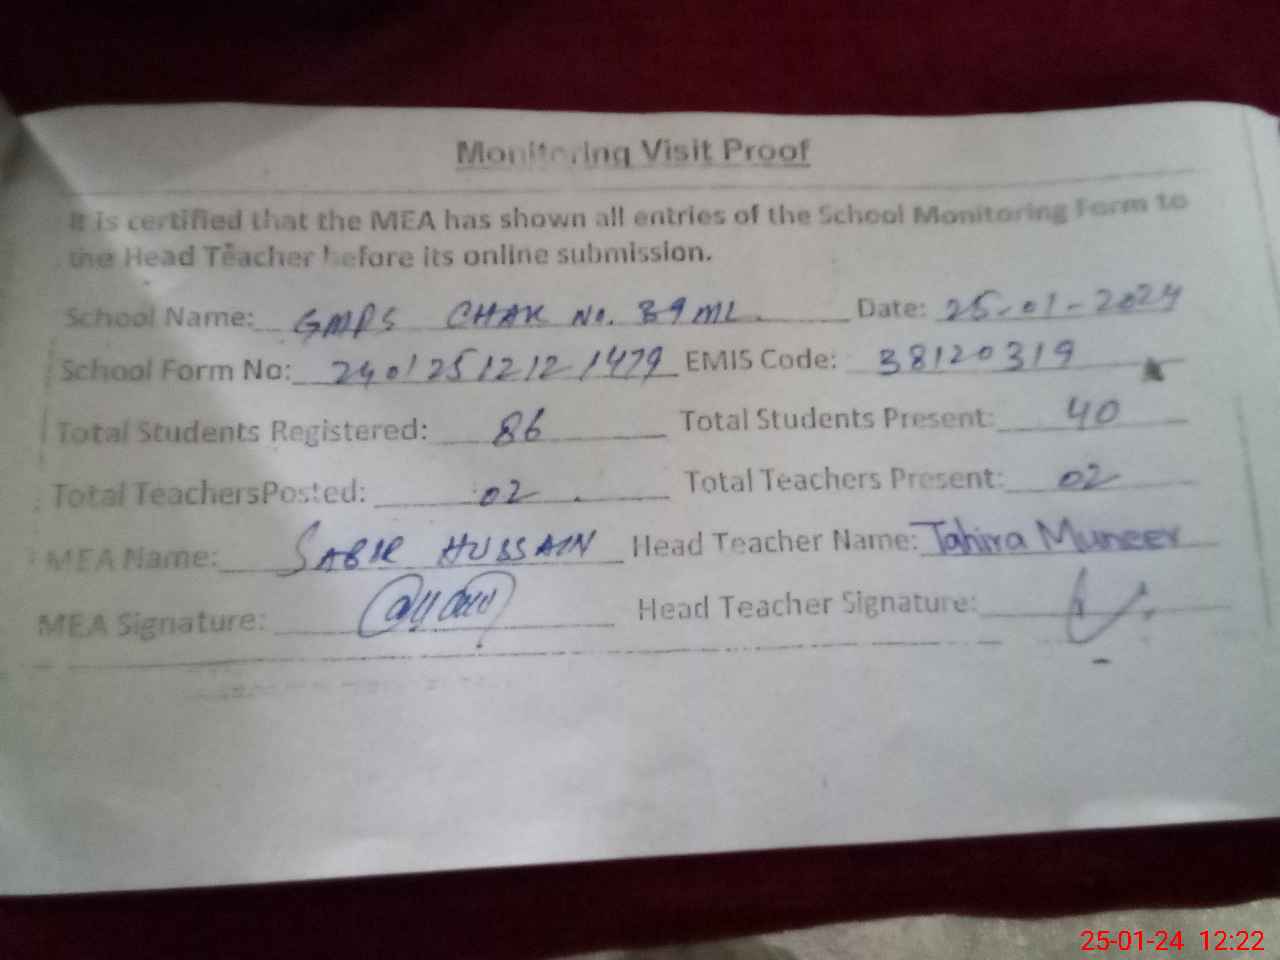 Monitoring Visit Proof
It is certified that the MEA has shown all entries of the School Monitoring Form to
the Head Teacher before its online submission.
School Name: GMPS CHAK No. 39 ML. Date: 25-01-2024
School Form No: 24012512121479 EMIS Code: 38120319
Total Students Registered: 86 Total Students Present: 40
Total TeachersPosted: 02 Total Teachers Present: 02
MEA Name: SABIR HUSSAIN Head Teacher Name: Tahira Muneer
MEA Signature: Head Teacher Signature:
25-01-24 12:22